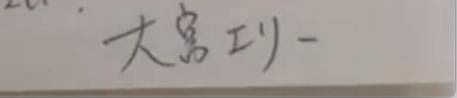 大宮エリー